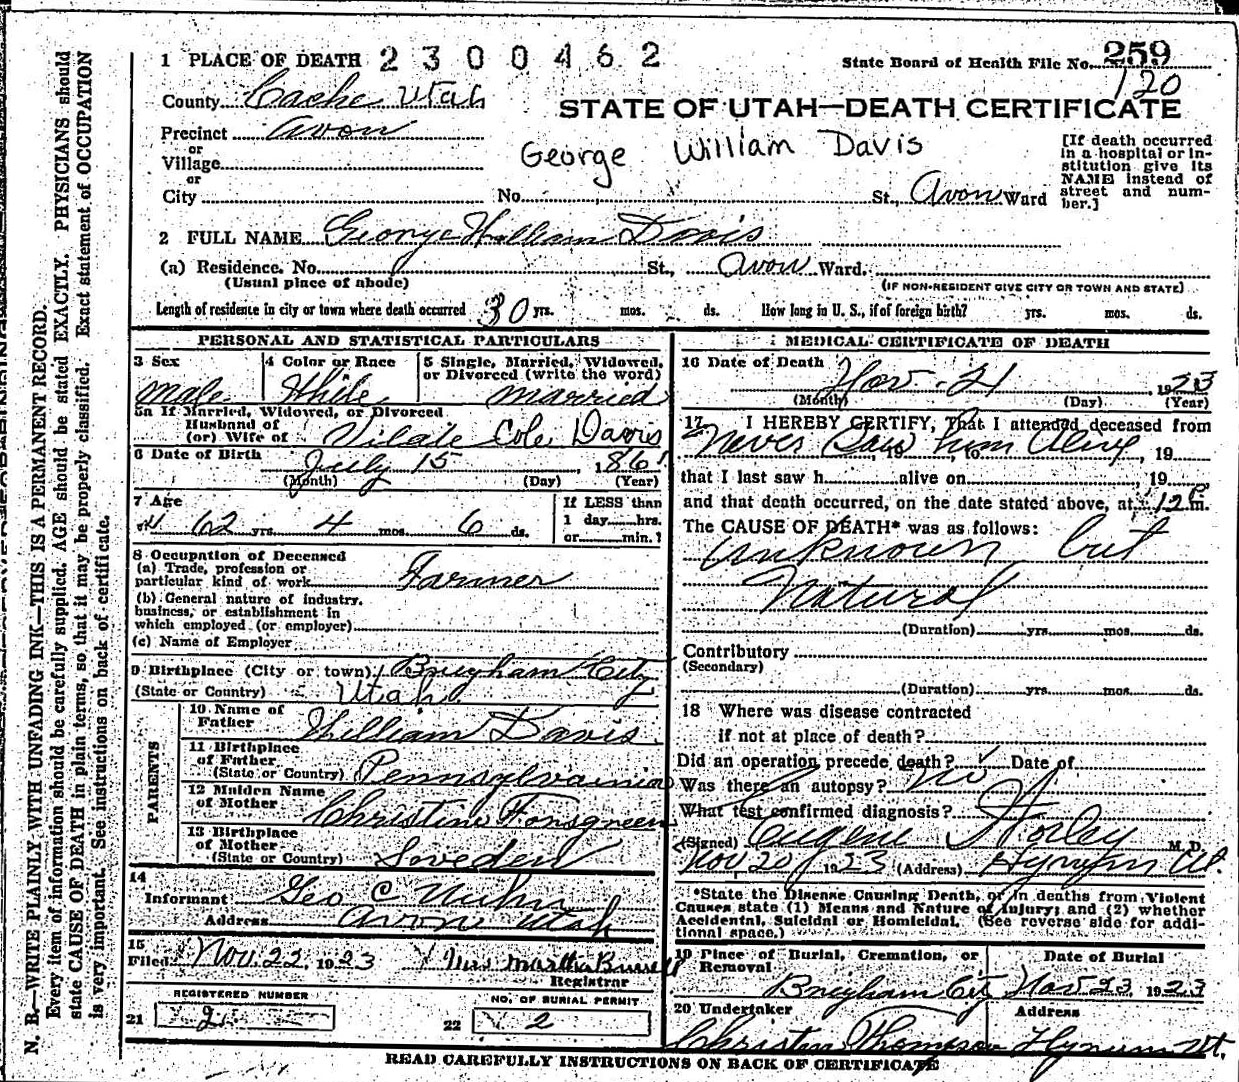 1 PLACE OF DEATH 2300462
State Board of Health File No. 259
120
County Cache Utah
STATE OF UTAH—DEATH CERTIFICATE
Precinct Avon
or
Village
or
City
George William Davis
No. St., Avon Ward
[If death occurred
in a hospital or in-
stitution give its
NAME instead of
street and num-
ber.]
2 FULL NAME George William Davis
(a) Residence. No. St., Avon Ward.
(Usual place of abode)
(IF NON-RESIDENT GIVE CITY OR TOWN AND STATE)
Length of residence in city or town where death occurred 30 yrs. mos. ds. How long in U. S., if of foreign birth? yrs. mos. ds.
PERSONAL AND STATISTICAL PARTICULARS
3 Sex
male
4 Color or Race
White
5 Single, Married, Widowed,
or Divorced (write the word)
married
5a If Married, Widowed, or Divorced
Husband of
(or) Wife of Vilate Cole Davis
6 Date of Birth July 15, 1861
(Month) (Day) (Year)
7 Age
62 yrs. 4 mos. 6 ds.
If LESS than
1 day hrs.
or min.?
8 Occupation of Deceased
(a) Trade, profession or
particular kind of work Farmer
(b) General nature of industry,
business, or establishment in
which employed (or employer)
(c) Name of Employer
9 Birthplace (City or town) Brigham City
(State or Country) Utah
PARENTS
10 Name of
Father William Davis
11 Birthplace
of Father
(State or Country) Pennsylvainia
12 Maiden Name
of Mother Christine Forsgreen
13 Birthplace
of Mother
(State or Country) Sweden
14
Informant Geo C
Address Avon Utah
15
Filed Nov. 22, 1923 Mrs Martha
Registrar
REGISTERED NUMBER
21 2
NO. OF BURIAL PERMIT
22 2
MEDICAL CERTIFICATE OF DEATH
16 Date of Death Nov. 21 1923
(Month) (Day) (Year)
17 I HEREBY CERTIFY, That I attended deceased from
Never Saw him Alive, 19
that I last saw h alive on , 19
and that death occurred, on the date stated above, at 12 P m.
The CAUSE OF DEATH* was as follows:
Unknown but
Natural
(Duration) yrs. mos. ds.
Contributory
(Secondary)
(Duration) yrs. mos. ds.
18 Where was disease contracted
if not at place of death?
Did an operation precede death? Date of
Was there an autopsy? No
What test confirmed diagnosis?
(Signed) Eugene Worley M. D.
Nov. 20, 1923 (Address) Hyrum Ut.
*State the Disease Causing Death, or in deaths from Violent
Causes state (1) Means and Nature of Injury; and (2) whether
Accidental, Suicidal or Homicidal. (See reverse side for addi-
tional space.)
19 Place of Burial, Cremation, or
Removal
Brigham City
Date of Burial
Nov 23, 1923
20 Undertaker
Christin Thompson
Address
Hyrum Ut.
READ CAREFULLY INSTRUCTIONS ON BACK OF CERTIFICATE
N. B.—WRITE PLAINLY WITH UNFADING INK—THIS IS A PERMANENT RECORD.
Every item of information should be carefully supplied. AGE should be stated EXACTLY. PHYSICIANS should
state CAUSE OF DEATH in plain terms, so that it may be properly classified. Exact statement of OCCUPATION
is very important. See instructions on back of certificate.